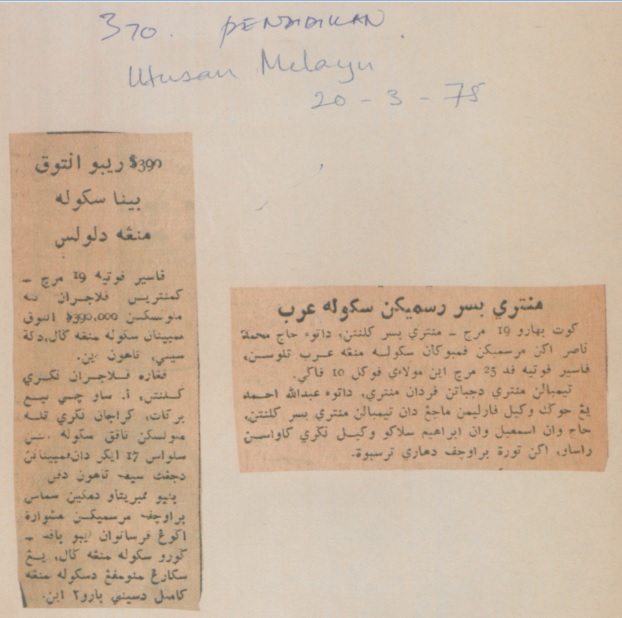 370. PENDIDIKAN
Utusan Melayu
20 - 3 - 75
$390 ريبو انتوق
بينا سكوله
منڠه دلولس
ڤاسير ڤوتيه 19 مرچ _
كمنترين ڤلاجران
$390,000 انتوق
سكوله منڠه ݢال، دكت
سيني، تاهون اين.
ڤڠاره ڤلاجران نݢري
كلنتن،
بركات، كراجان نݢري تله
سكوله
سلواس 17 ايكر دان
تاهون دڤن
بليو ممبريتاو دمكين سماس
براوچڤ مرسميكن مشوارت
اݢوڠ ڤرساتوان ايبو باڤ _
ݢورو سكوله منڠه ݢال، يڠ
سكارڠ منومڤڠ دسكوله منڠه
كامل دسيني بارو٢ اين.
منتري بسر رسميكن سكوله عرب
كوت بهارو 19 مرچ _ منتري بسر كلنتن، داتوء حاج محمد
ناصر اكن مرسميكن ڤمبوكاءن سكوله منڠه عرب تلوسن،
ڤاسير ڤوتيه ڤد 25 مرچ اين مولاءي ڤوكل 10 ڤاݢي.
تيمبالن منتري دجباتن ڤردان منتري، داتوء عبدالله احمد
يڠ جوݢ وكيل ڤارليمن ماچڠ دان تيمبالن منتري بسر كلنتن،
حاج وان اسمعيل وان ابراهيم سلاكو وكيل نݢري كاواسن
راساو، اكن تورت براوچڤ دهاري ترسبوت.